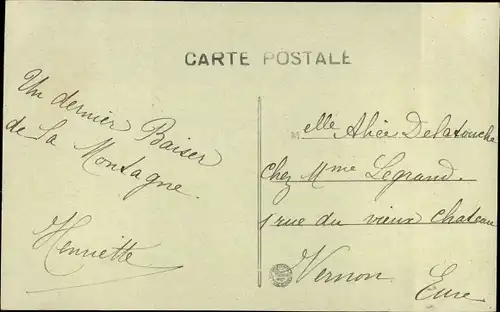 CARTE POSTALE
Un dernier Baiser
de La Montagne.
Henriette
Melle Alice Delatouche
chez Mme Legrand.
1 rue du vieux chateau
Vernon
Eure